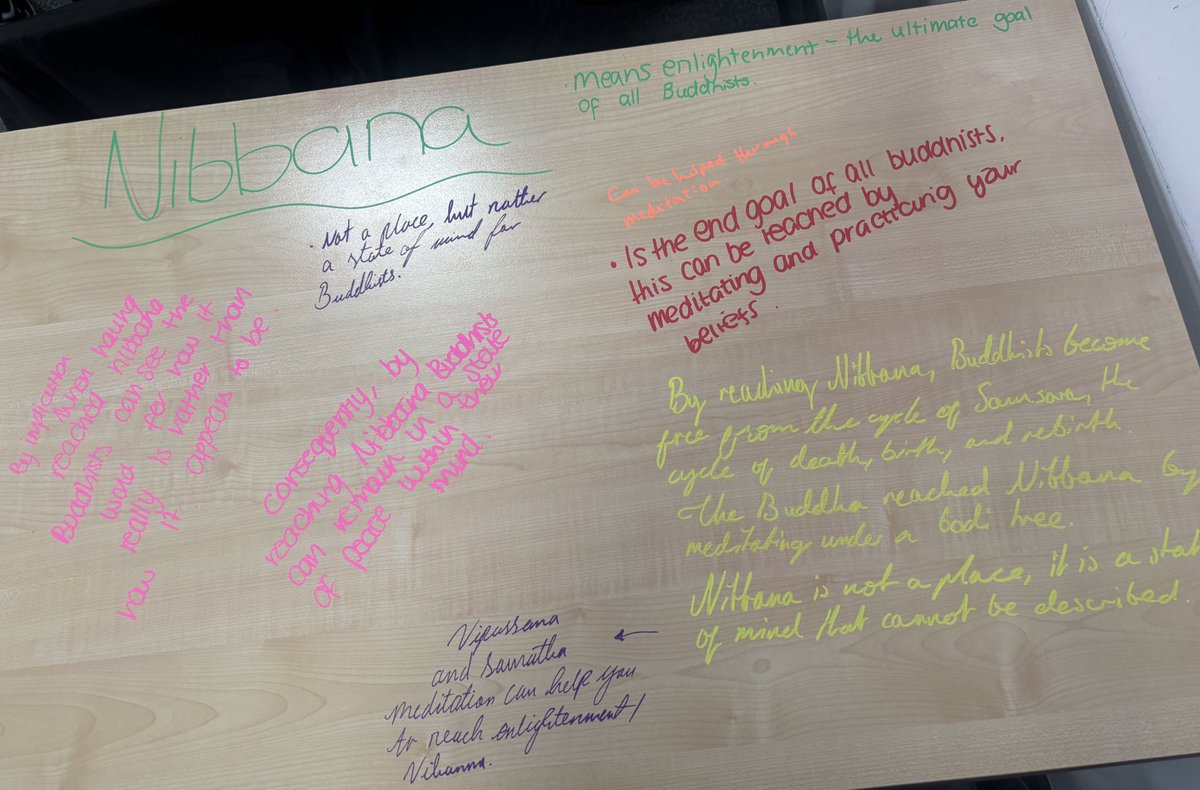 Nibbana
· Means enlightenment – the ultimate goal
of all Buddhists.
· Not a place, but rather
a state of mind for
Buddhists.
Can be helped through
meditation.
· Is the end goal of all buddhists.
this can be reached by
meditating and practicing your
beliefs.
By implication
when having
reached nibbana
Buddhists can see the
word for how it
really is rather than
how it appears to be.
Consequently, by
reaching Nibbana Buddhists
can remain in a state
of peace within their
mind.
By reaching Nibbana, Buddhists become
free from the cycle of Samsara, the
cycle of death, birth, and rebirth.
- The Buddha reached Nibbana by
meditating under a bodi tree.
Nibbana is not a place, it is a stat
of mind that cannot be described.
Vipassana
and Samatha
meditation can help you
to reach enlightenment/
Nibanna.